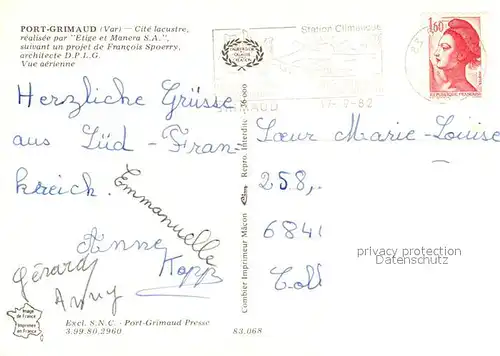 PORT-GRIMAUD (Var) — Cité lacustre,
réalisée par "Etige et Manera S.A.",
suivant un projet de François Spoerry,
architecte D.P.L.G.
Vue aérienne
Station Climatique
GRIMAUD
17-9-82
1,60
Herzliche Grüsse
aus Süd-Fran
kreich.
Emmanuelle
Anne
Kopp
Gérard
Anny
Sœur Marie-Louise
258,
6841
privacy protection
www.ansichtskarten-center.de
Combier Imprimeur Mâcon
Repro. Interdite
26.000
Image
de France
Imprimée
en France
Excl. S.N.C. - Port-Grimaud Presse
3.99.80.2960
83.068